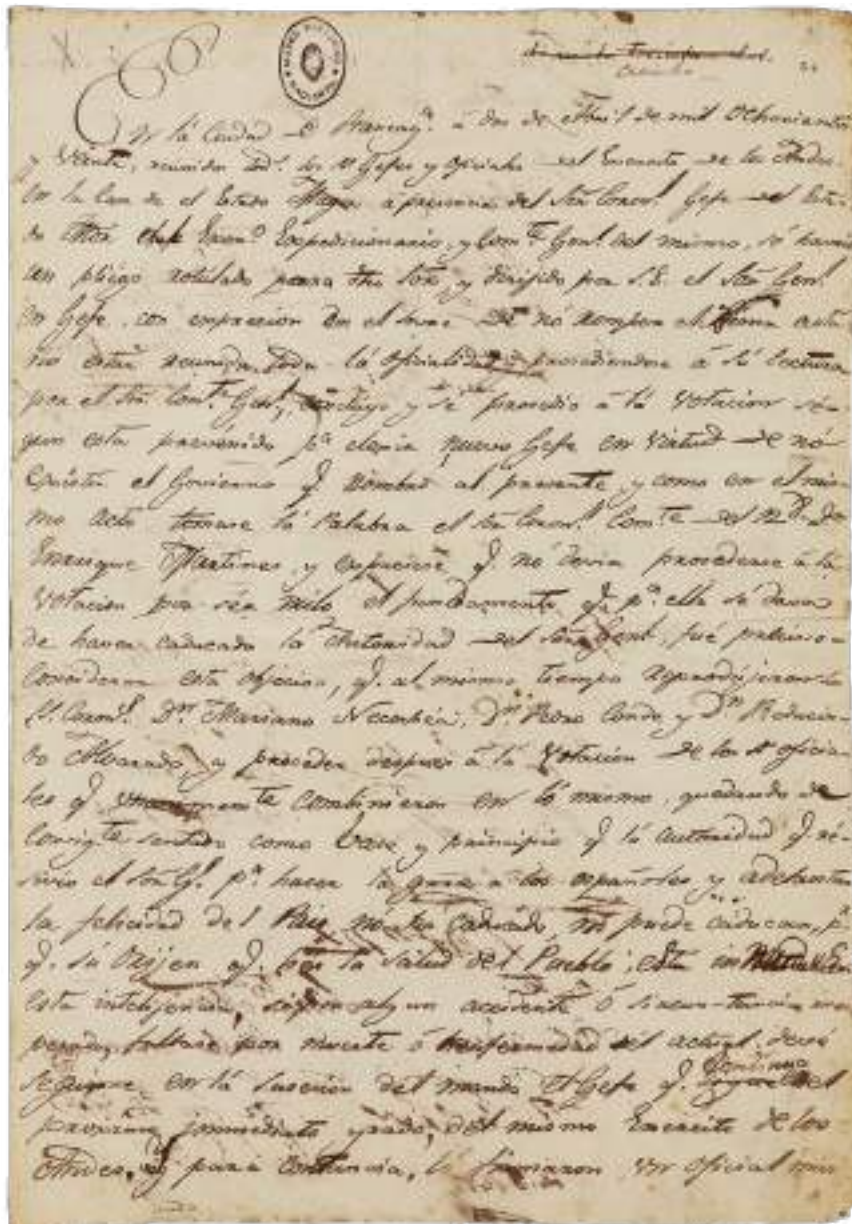 En la Ciudad de Rancag.ª à dos de Abril de mil Ochocientos
y Veinte, reunidos tod.s los S.s Gefes y Oficiales del Exercito de los Andes
en la Casa de el Estado Mayor a presencia del Sôr Coron.l Gefe del Esta-
do Mõr del Exerc.to Expedicionario, y Com.te Gen.l del mismo, se havrió
un pliego rotulado para dho Sôr, y dirijido por S.E. el Sôr Gen.l
en Gefe, con exprecion en el sovre de nó romperse el sello asta
no estàr reunida toda la oficialidad, procediendose à sú lectura
por el Sôr Com.te Gen.l, concluyó y se procedio à là Votacion se-
gun està prevenido p.a elegir nuevo Gefe en Virtud de nó
Existir el Govierno q.e nombró al presente, y como en el mis-
mo acto tomase là Palabra el Sôr Coron.l Com.te del N.
Enrique Martines, y expuciese q.e nó devia procederse à là
Votacion por sér nulo el fundamento q.e p.a ella sé dava
de haver caducado là Autoridad del Sôr Gen.l, fué preciso
Considerar esta objecion, q.e al mismo tiempo reprodujeron los
S.s Coron.s D.n Mariano Necochea, D.n Pedro Conde y D.n Rudecin-
do Alvarado, y proceder despues à là Votacion de los S.s oficia-
les q.e combinieron en lò mismo, quedando de
consig.te sentado como base y principio q.e là autoridad q.e re-
sivio el Sôr G.l p.a hacer la guerra à los españoles y adelantar
la felicidad del Pais nó ha caducado, nó puede caducar, p.r
q.e sú Orijen q.e es la salud del Pueblo, esta
esta intelijencia, si por algun accidente ó sircunstancia ines-
perada, faltase por muerte ó enfermedad el actual, deve
seguirse en là sucecion del mando el Gefe q.e continue del
proximo immediato grado, del mismo Exercito de los
Andes, y para constancia, lo firmaron un oficial mas